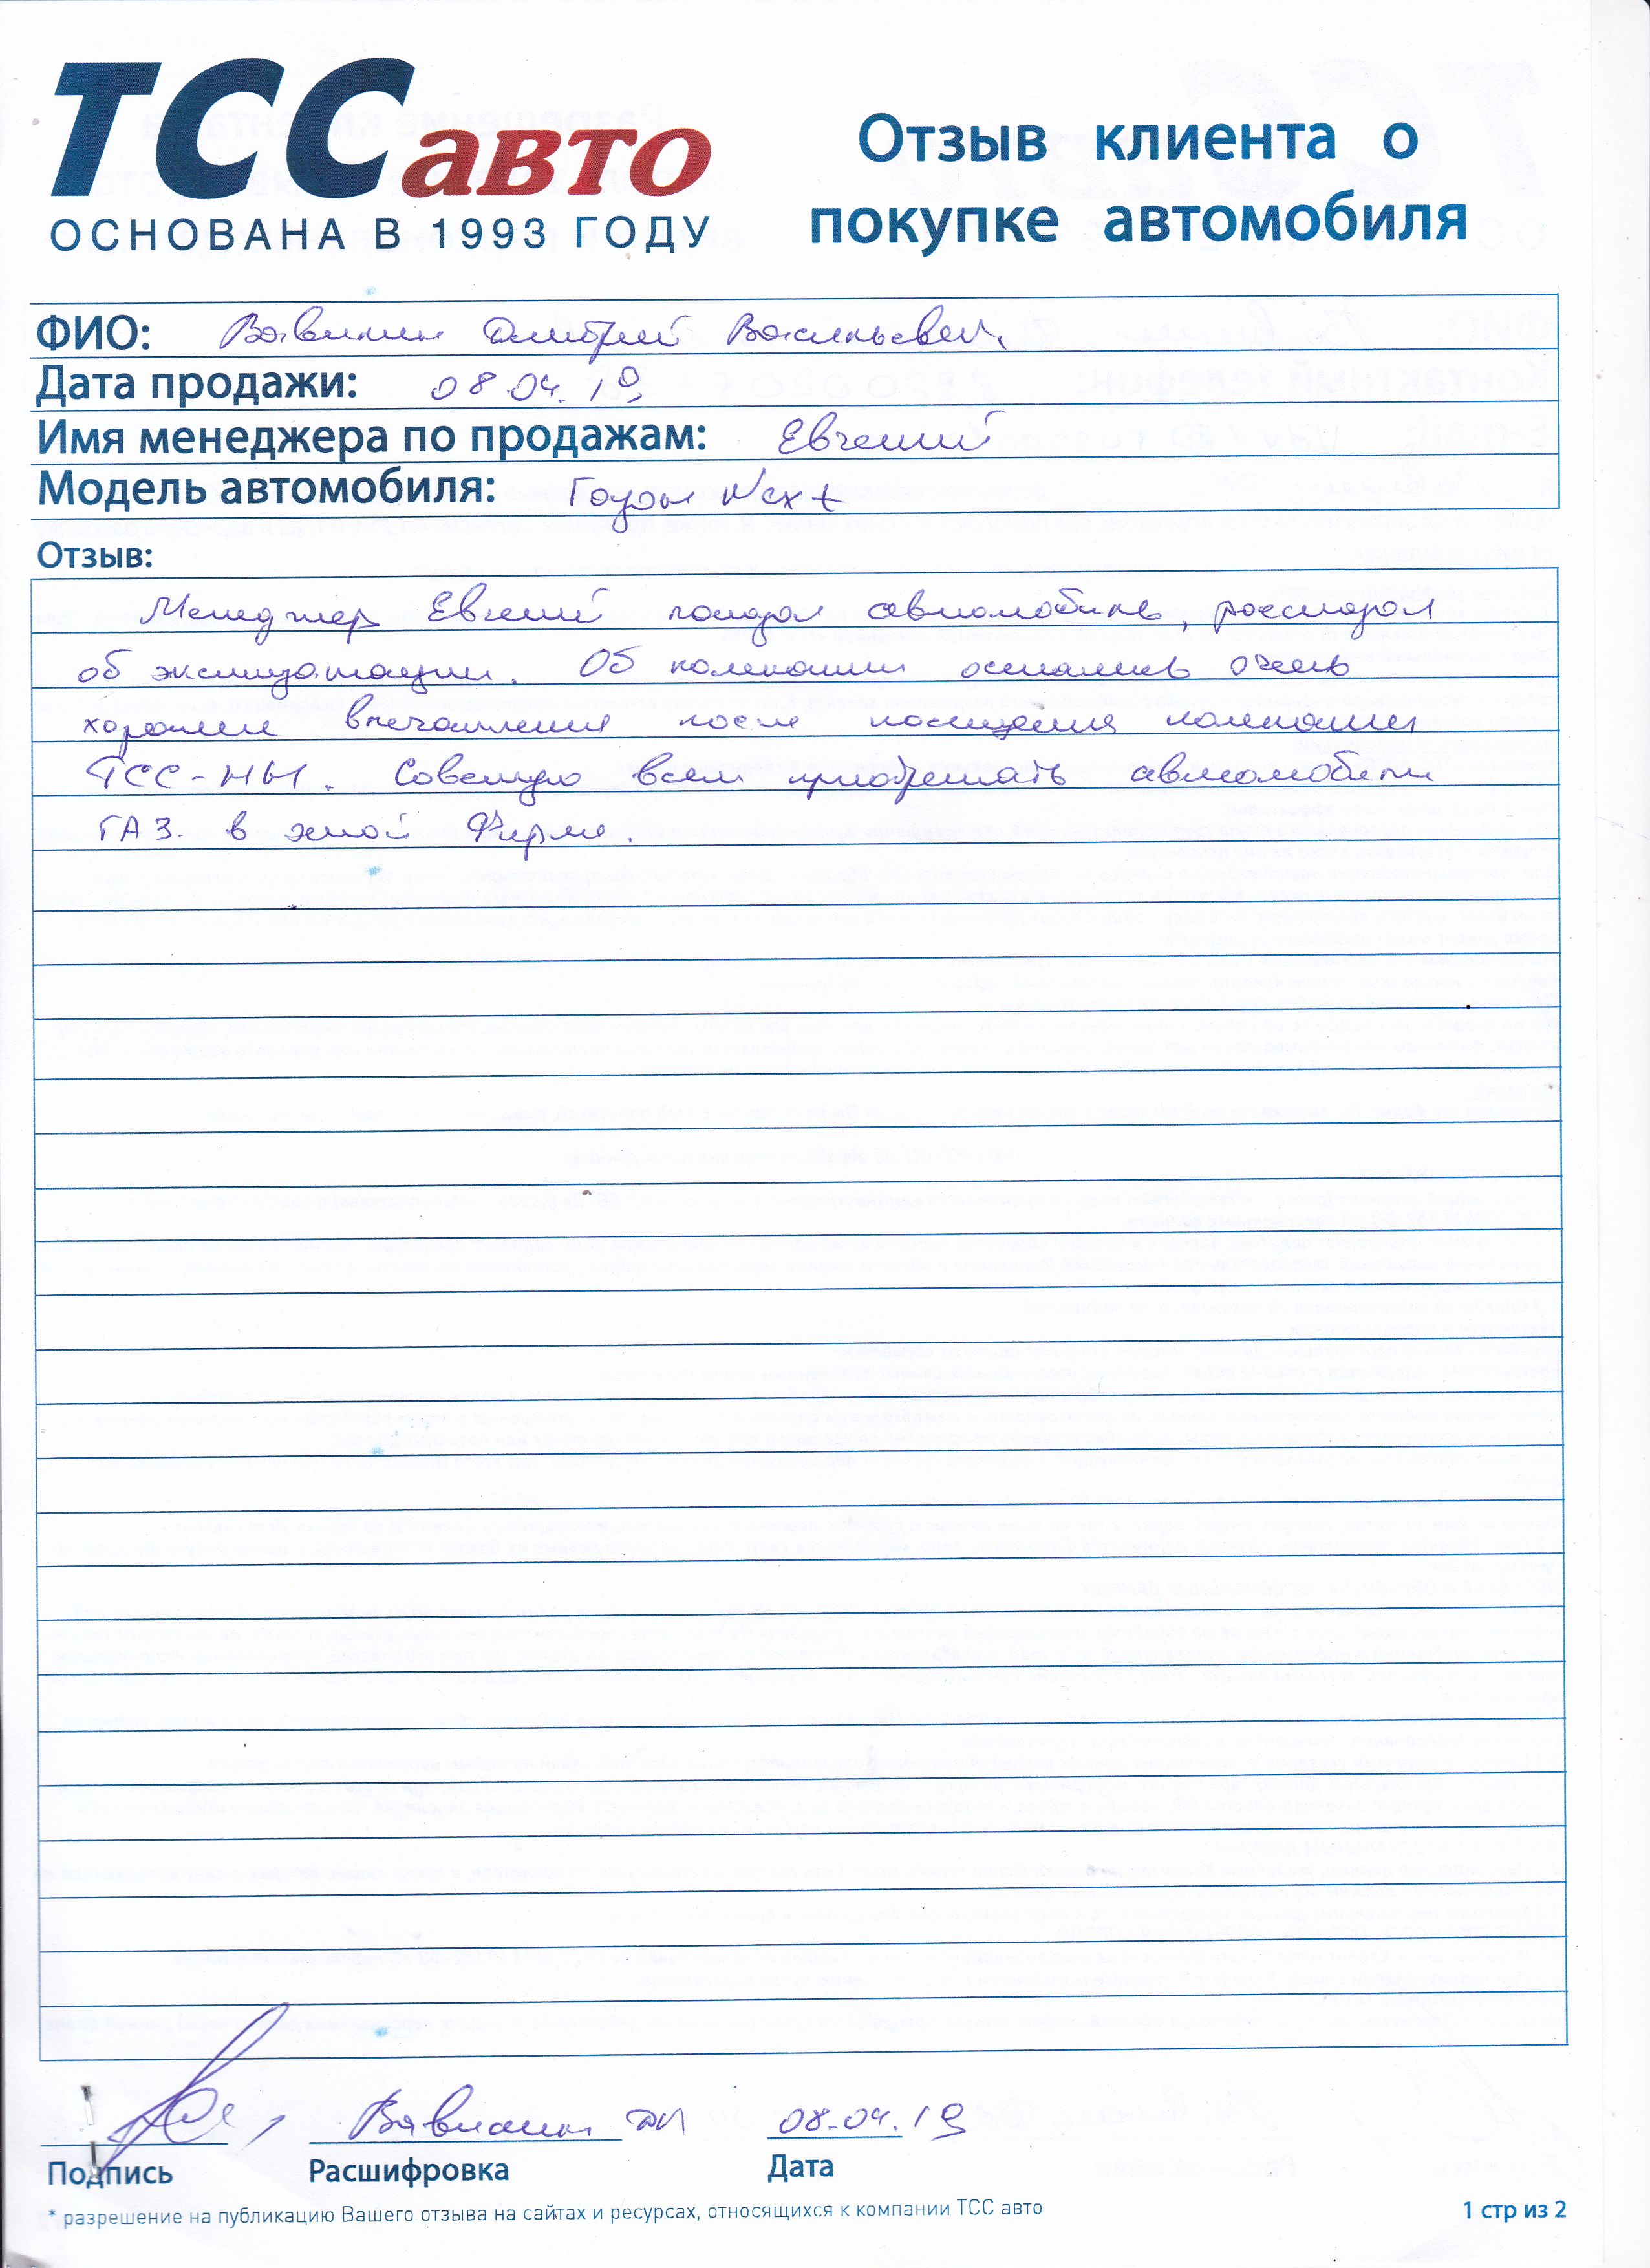 ТСС авто
ОСНОВАНА В 1993 ГОДУ
Отзыв клиента о
покупке автомобиля
ФИО: Дмитрий Васильевич
Дата продажи: 08.04.19
Имя менеджера по продажам: Евгений
Модель автомобиля: Газон Next
Отзыв:
Менеджер Евгений показал автомобиль, рассказал
об эксплуатации. Об компании остались очень
хорошие впечатления после посещения компании
ТСС-НН. Советую всем приобретать автомобили
ГАЗ. в этой Фирме.
08.04.19
Подпись Расшифровка Дата
* разрешение на публикацию Вашего отзыва на сайтах и ресурсах, относящихся к компании ТСС авто
1 стр из 2